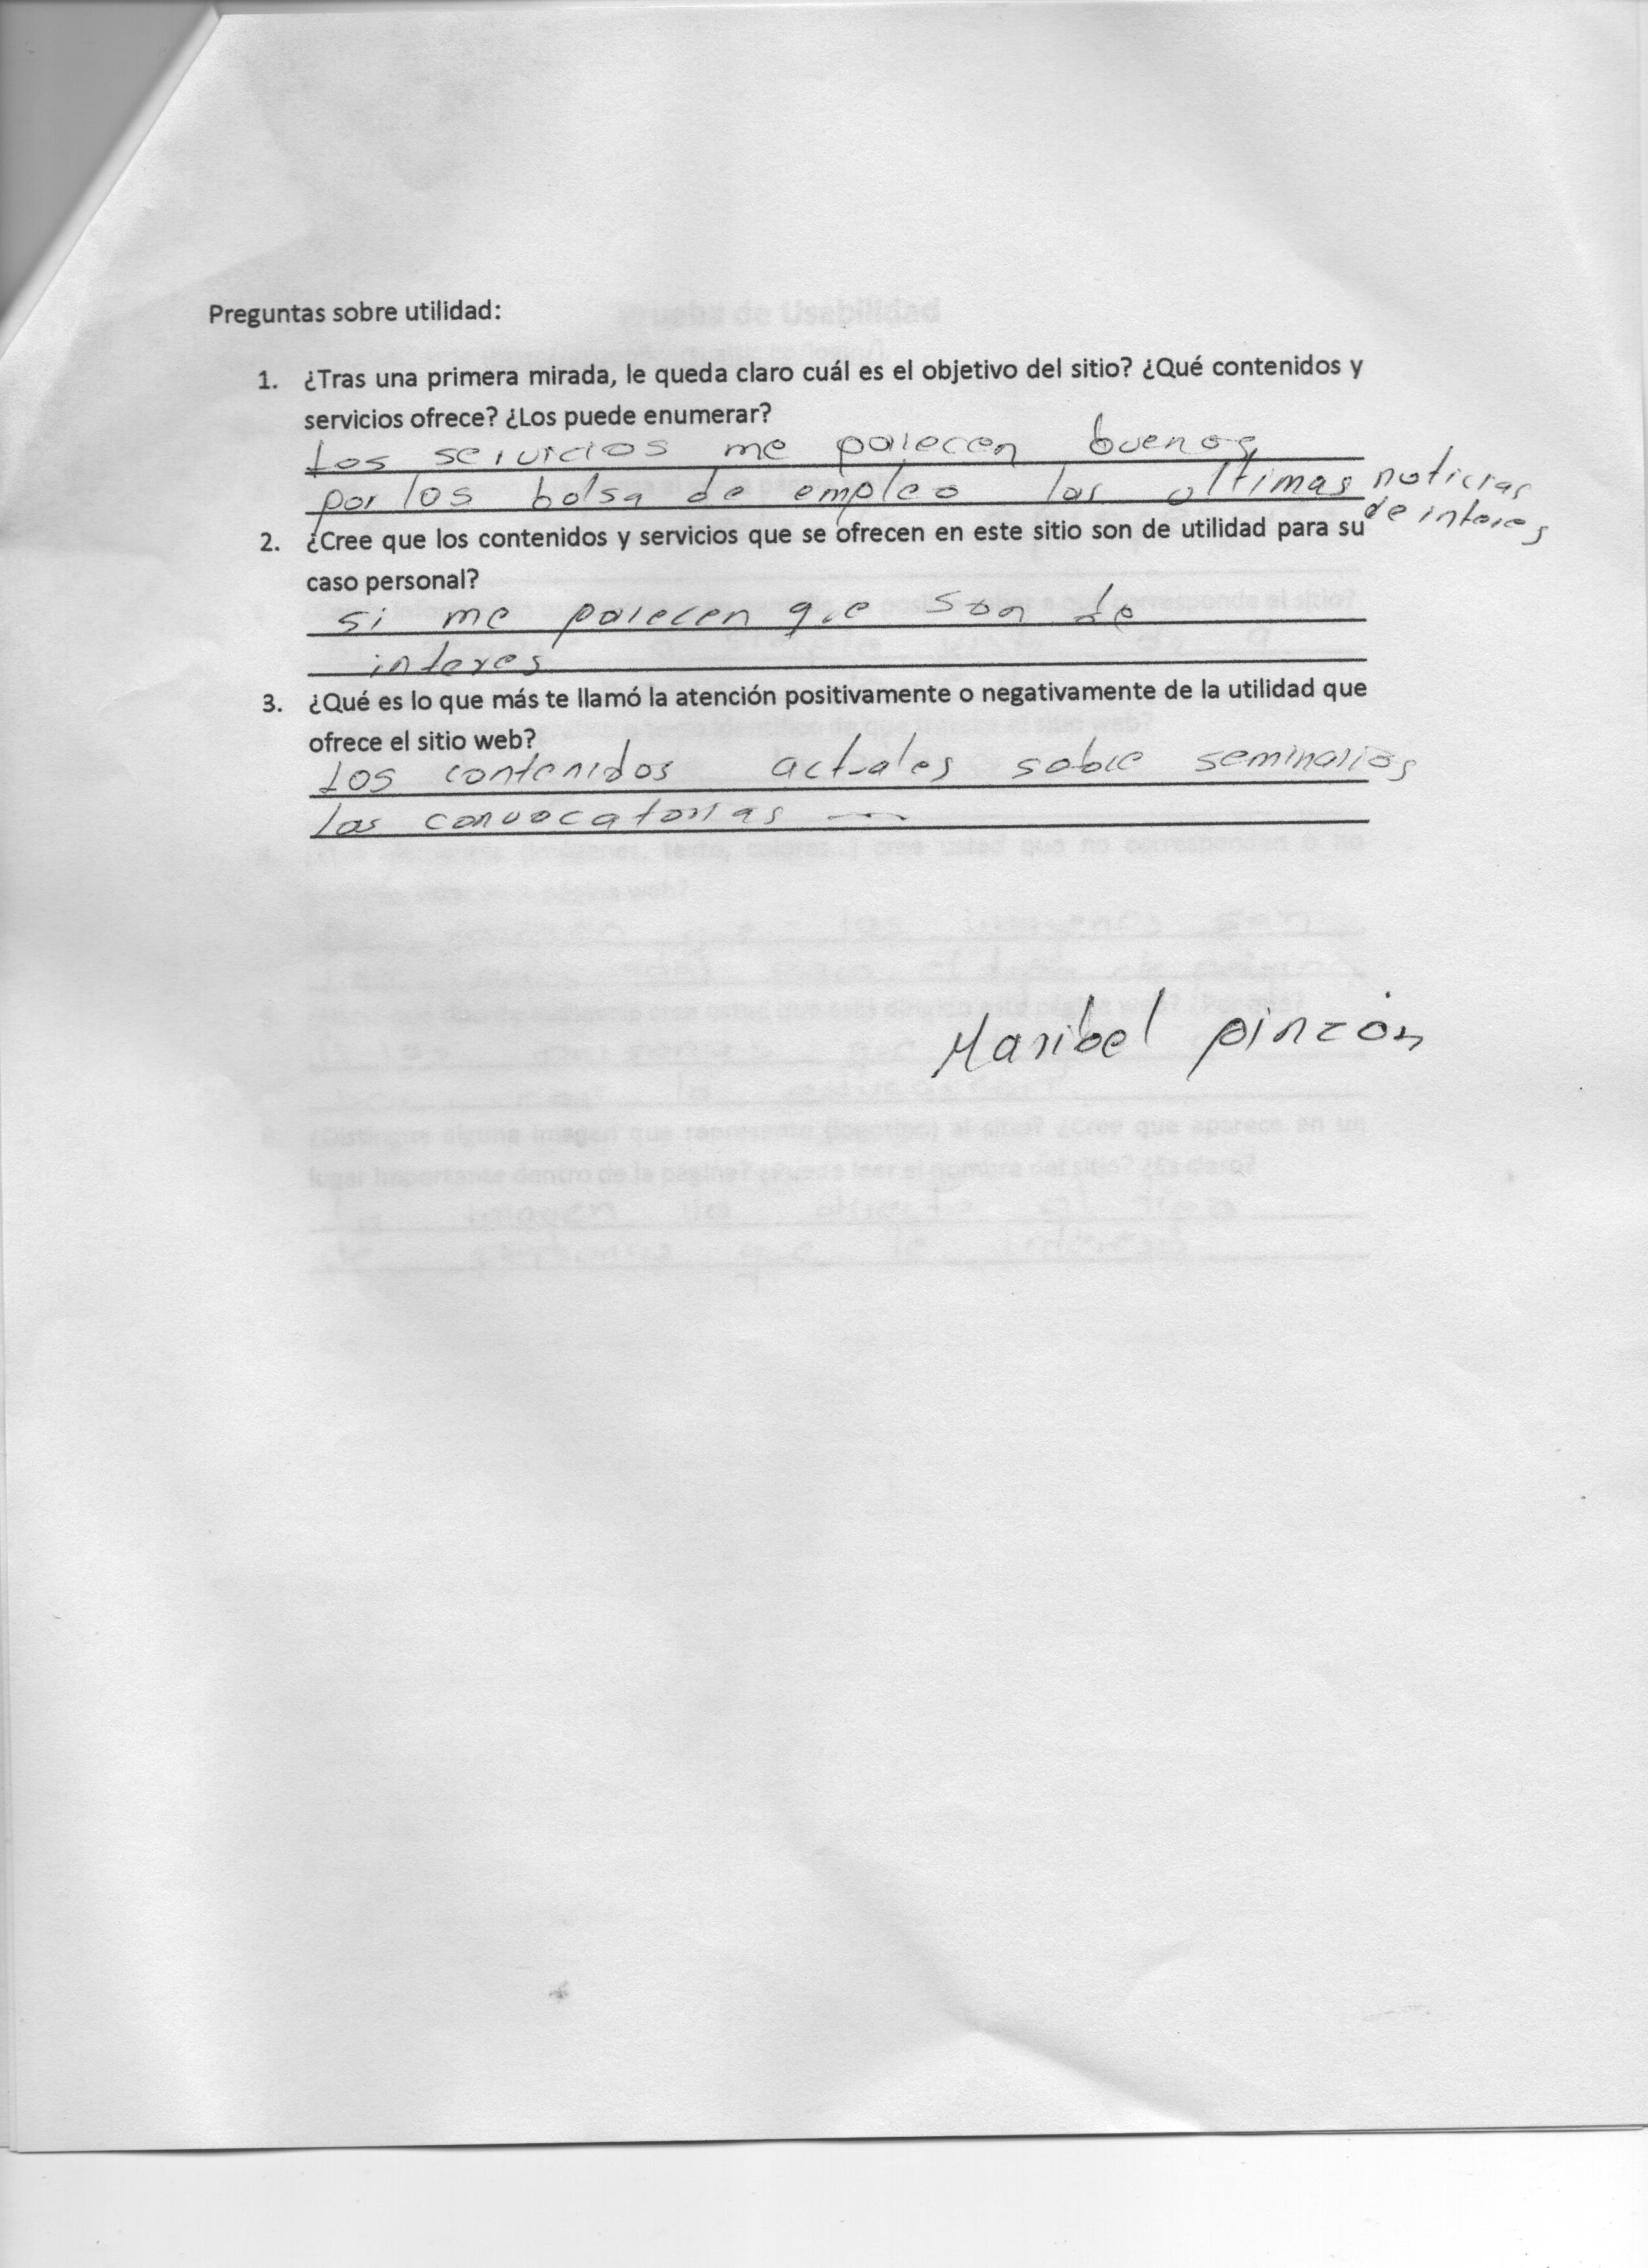 Preguntas sobre utilidad:
1. ¿Tras una primera mirada, le queda claro cuál es el objetivo del sitio? ¿Qué contenidos y
servicios ofrece? ¿Los puede enumerar?
Los servicios me parecen buenos
por los bolsa de empleo las ultimas noticias
de interes
2. ¿Cree que los contenidos y servicios que se ofrecen en este sitio son de utilidad para su
caso personal?
si me parecen que son de
interes
3. ¿Qué es lo que más te llamó la atención positivamente o negativamente de la utilidad que
ofrece el sitio web?
Los contenidos actuales sobre seminarios
las convocatorias
Maribel pinzón